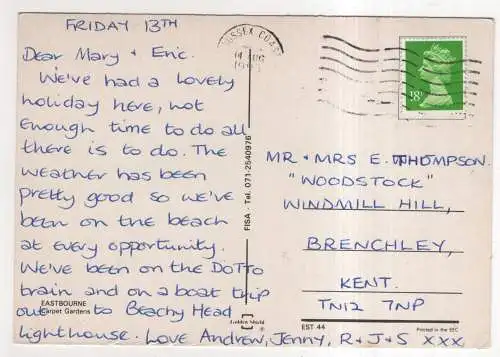 FRIDAY 13TH
Dear Mary + Eric.
We've had a lovely
holiday here, not
enough time to do all
there is to do. The
weather has been
pretty good so we've
been on the beach
at every opportunity.
We've been on the DOTTO
train and on a boat trip
out to Beachy Head
lighthouse. Love Andrew, Jenny, R + J + S xxx
EASTBOURNE
Carpet Gardens
FISA - Tel. 071-2540976
Golden Shield
®
SUSSEX COAST
18P
MR + MRS E. THOMPSON.
"WOODSTOCK"
WINDMILL HILL,
BRENCHLEY,
KENT.
TN12 7NP
EST 44
Printed in the EEC